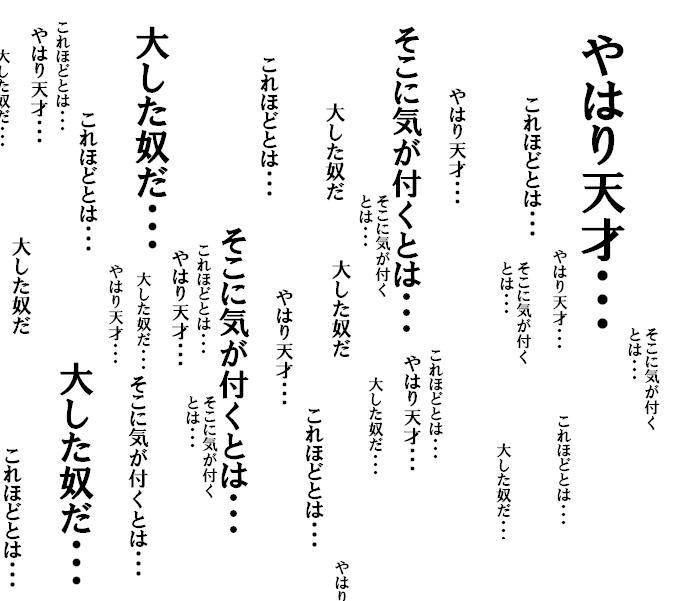 やはり天才・・・
そこに気が付く
とは・・・
これほどとは・・・
やはり天才・・・
これほどとは・・・
そこに気が付く
とは・・・
大した奴だ・・・
やはり天才・・・
そこに気が付くとは・・・
これほどとは・・・
やはり天才・・・
そこに気が付く
とは・・・
大した奴だ・・・
大した奴だ
大した奴だ
やはり
これほどとは・・・
やはり天才・・・
これほどとは・・・
そこに気が付くとは・・・
これほどとは・・・
やはり天才・・・
そこに気が付く
とは・・・
大した奴だ・・・
大した奴だ・・・
そこに気が付くとは・・・
やはり天才・・・
これほどとは・・・
大した奴だ・・・
これほどとは・・・
やはり天才・・・
大した奴だ
これほどとは・・・
大した奴だ・・・